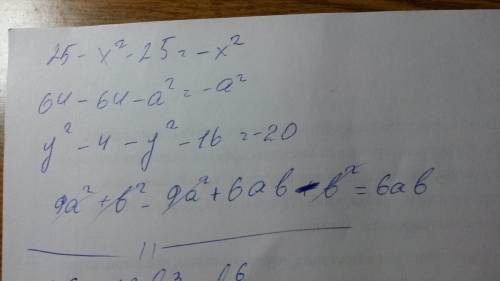 25 - x² - 25 = -x²
64 - 64 - a² = -a²
y² - 4 - y² - 16 = -20
9a² + b² - 9a² + 6ab - b² = 6ab
11